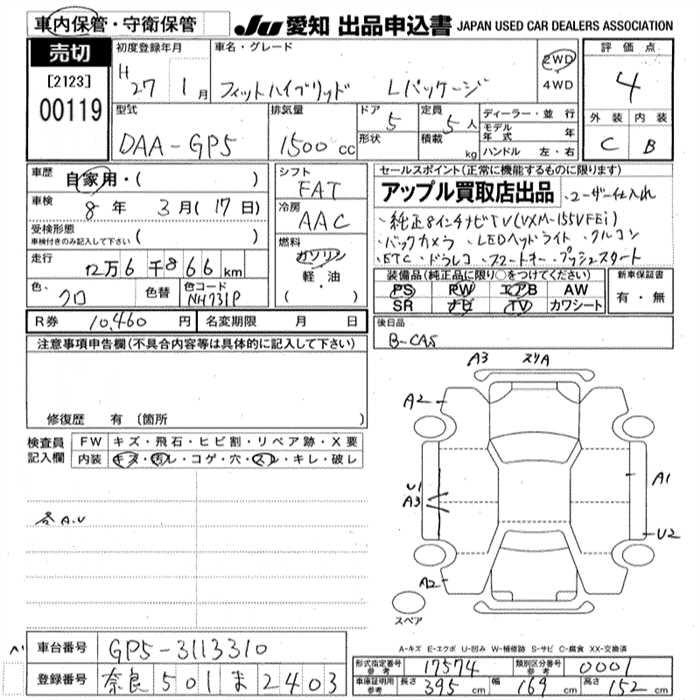 車内保管・守衛保管
JU 愛知 出品申込書 JAPAN USED CAR DEALERS ASSOCIATION
売切
[2123]
00119
初度登録年月
H27 1月
車名・グレード
フィットハイブリッド Lパッケージ
2WD
4WD
評価点
4
外装 内装
C B
型式
DAA-GP5
排気量
1500 cc
ドア 5
形状
定員 5人
積載 kg
ディーラー・並行
モデル年式 年
ハンドル 左・右
車歴 自家用・( )
車検 8年 3月(17日)
受検形態
車検付きのみ記入して下さい ( )
走行 12万6千866km
色 クロ 色替 色コード NH731P
シフト
FAT
冷房
AAC
燃料
ガソリン
軽・油
( )
セールスポイント(正常に機能するものに限ります)
アップル買取店出品 ・ユーザー仕入れ
・純正8インチナビTV(VXM-155VFEi)
・バックカメラ ・LEDヘッドライト ・クルコン
・ETC ・ドラレコ ・スマートキー ・プッシュスタート
装備品(純正品に限り○をつけてください)
PS PW エアB AW
SR ナビ TV カワシート
新車保証書
有・無
R券 10,460円 名変期限 月 日
後日品
B-CAS
注意事項申告欄(不具合内容等は具体的に記入して下さい)
修復歴 有 (箇所 )
検査員記入欄
FW キズ・飛石・ヒビ割・リペア跡・X要
内装 キズ・汚レ・コゲ・穴・スレ・キレ・破レ
各A.U
A3 スリA
A2
U1
A3
A1
U2
A2
スペア
A-キズ E-エクボ U-凹み W-補修跡 S-サビ C-腐食 XX-交換済
車台番号 GP5-3113310
登録番号 奈良 501 ま 2403
形式指定番号 参考 17574 類別区分番号 参考 0001
車庫証明用 参考 長さ 395cm 幅 169cm 高さ 152cm